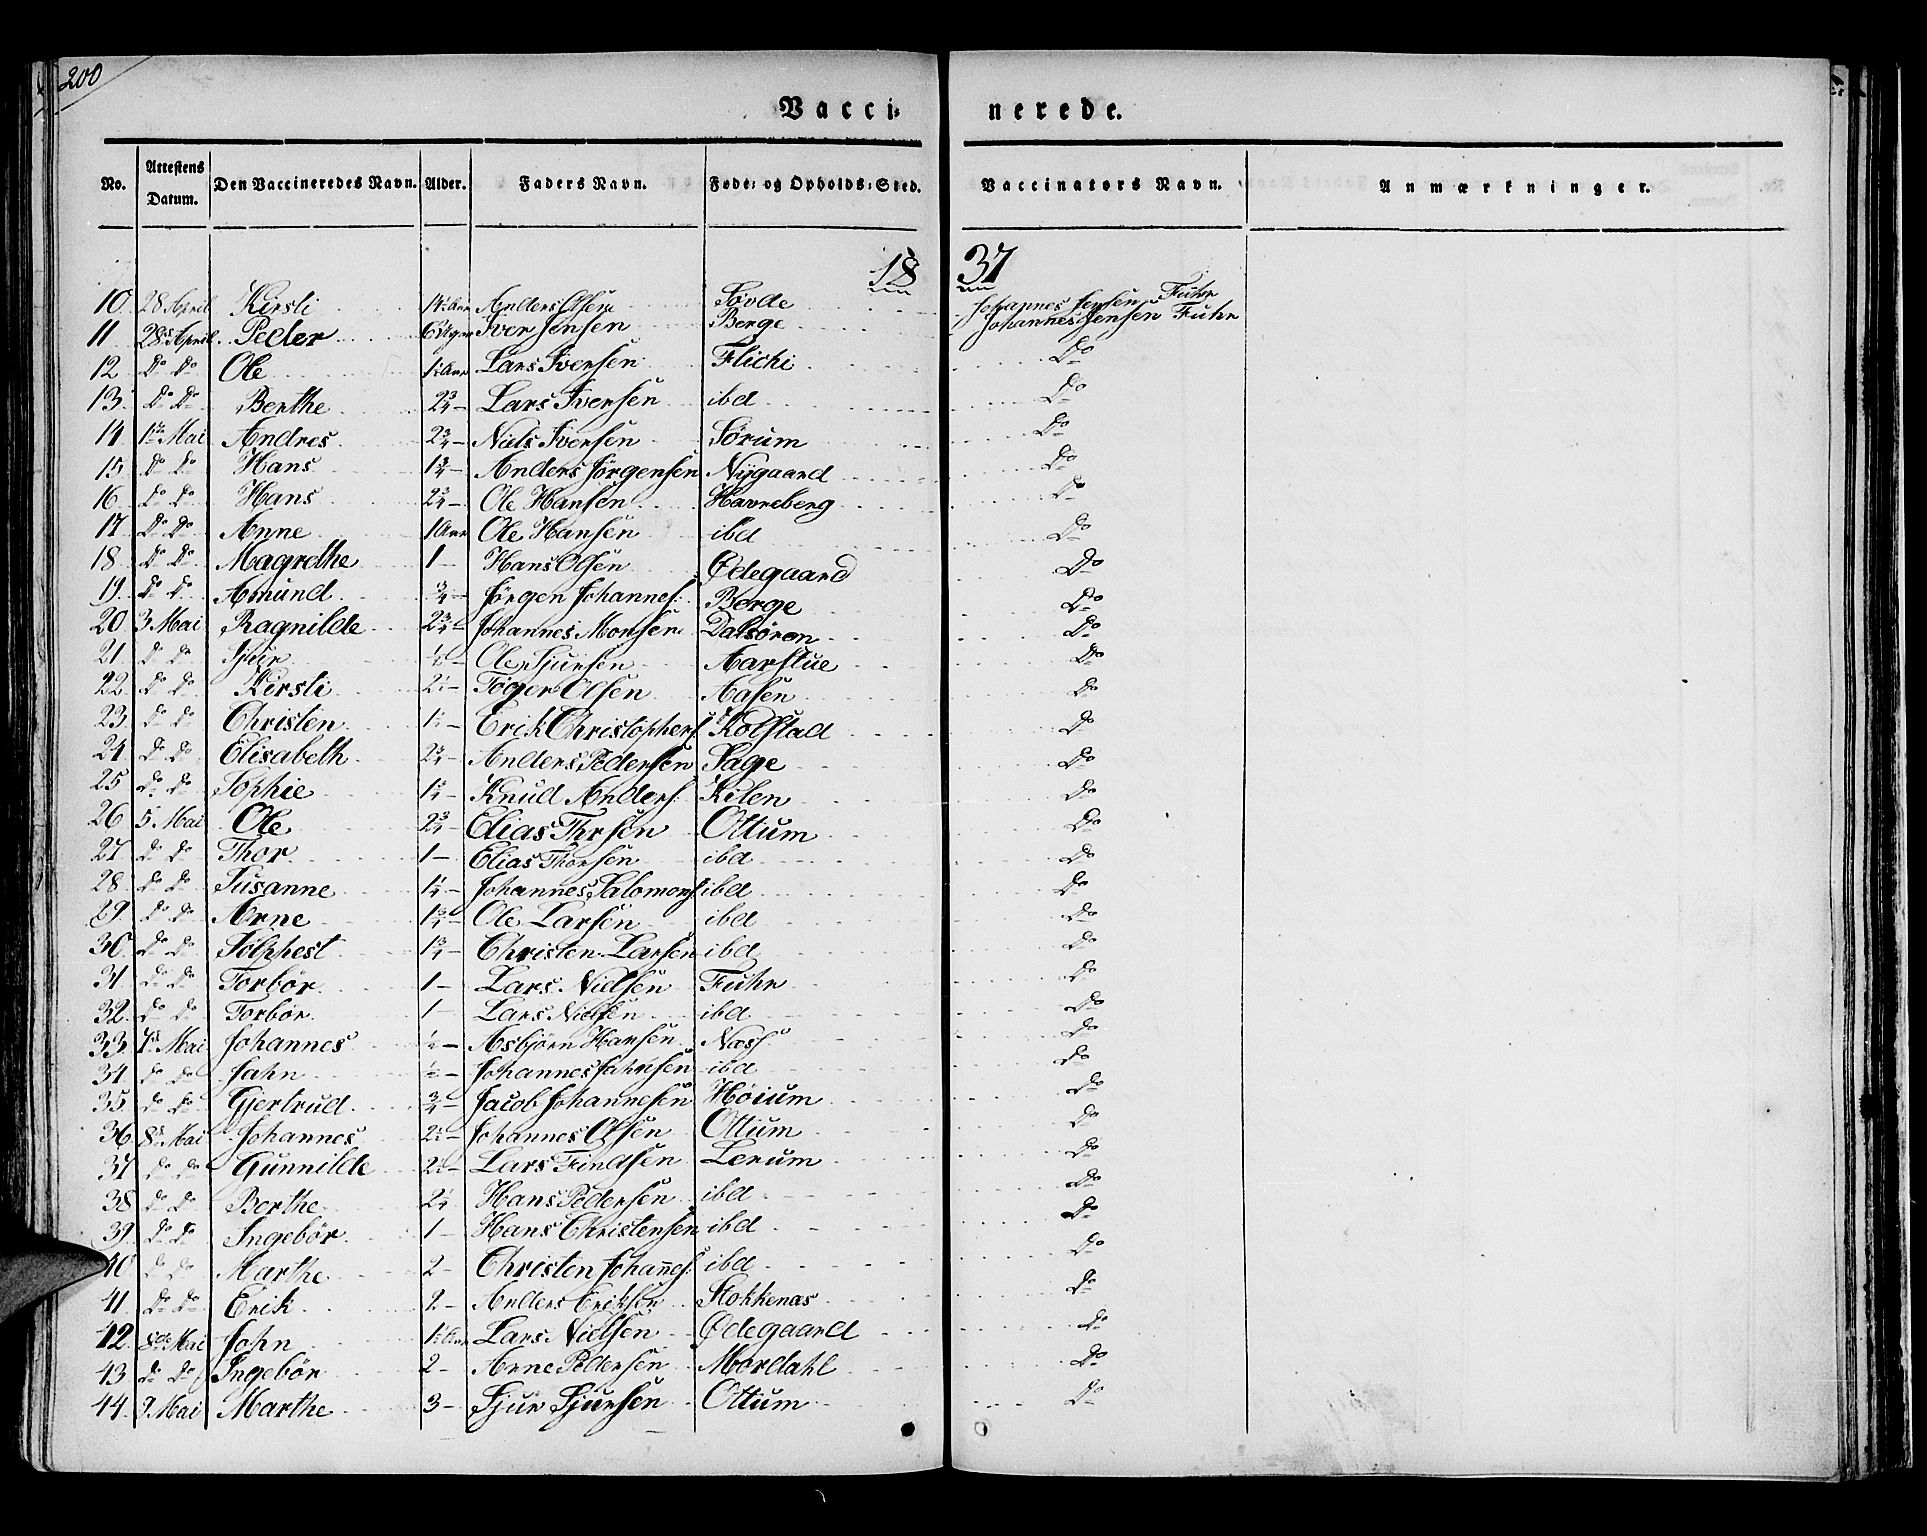 200
Vacci- nerede.
No. Attestens Datum. Den Vaccineredes Navn. Alder. Faders Navn. Føde- og Opholds-Sted. Vaccinators Navn. Anmærkninger.
18 37
10 28 April Kirsti Aar Anders Olsen Søvde Johannes Jensen Fuhr
11 28 April Peder 6 Uger Iver Jensen Berge Johannes Jensen Fuhr
12 Do Do Ole Aar Lars Iversen Flichi Do
13 Do Do Berthe 2¾ – Lars Iversen ibd Do
14 1ste Mai Andres 2¾ – Niels Iversen Sørum Do
15 Do Do Hans 1¾ – Anders Jørgensen Nygaard Do
16 Do Do Hans 2¾ – Ole Hansen Havreberg Do
17 Do Do Anne 1 Aar Ole Hansen ibd Do
18 Do Do Magrethe 1 – Hans Olsen Ødegaard Do
19 Do Do Amund ¾ – Jørgen Johannes. Berge Do
20 3 Mai Ragnilde 2¾ – Johannes Monsen Dalsøren Do
21 Do Do Sjur ½ – Ole Sjursen Aarstue Do
22 Do Do Kirsti 2½ – Tøger Olsen Aasen Do
23 Do Do Christen 1½ – Erik Christophers. Kolstad Do
24 Do Do Elisabeth – Anders Pedersen Sage Do
25 Do Do Sophie – Knud Anders. Kilen Do
26 5 Mai Ole 2¾ – Elias Thrsen Ottum Do
27 Do Do Thor 1 – Elias Thorsen ibd Do
28 Do Do Susanne 1¼ – Johannes Salomons. ibd Do
29 Do Do Arne 1¾ – Ole Larsen ibd Do
30 Do Do Sølphest 1¾ – Christen Larsen ibd Do
31 Do Do Torbør 1 – Lars Nielsen Fuhr Do
32 Do Do Torbør 1 – Lars Nielsen ibd Do
33 7de Mai Johannes ½ – Asbjørn Hansen Næss Do
34 Do Do Jahn ½ – Johannes Jahnsen ibd Do
35 Do Do Gjertrud ¾ – Jacob Johannesen Høium Do
36 8de Mai Johannes 2½ – Johannes Olsen Ottum Do
37 Do Do Gunnilde 2½ – Lars Findsen Lerum Do
38 Do Do Berthe 2¼ Hans Pedersen ibd Do
39 Do Do Ingebør 1 – Hans Christensen ibd Do
40 Do Do Marthe 2 – Christen Johannes. ibd Do
41 Do Do Erik 2 – Anders Eriksen Stokkenæs Do
42 8de Mai John 1½ Aar Lars Nielsen Ødegaard Do
43 Do Do Ingebør 2 – Arne Pedersen Mordahl Do
44 9 Mai Marthe 3 – Sjur Sjursen Ottum Do